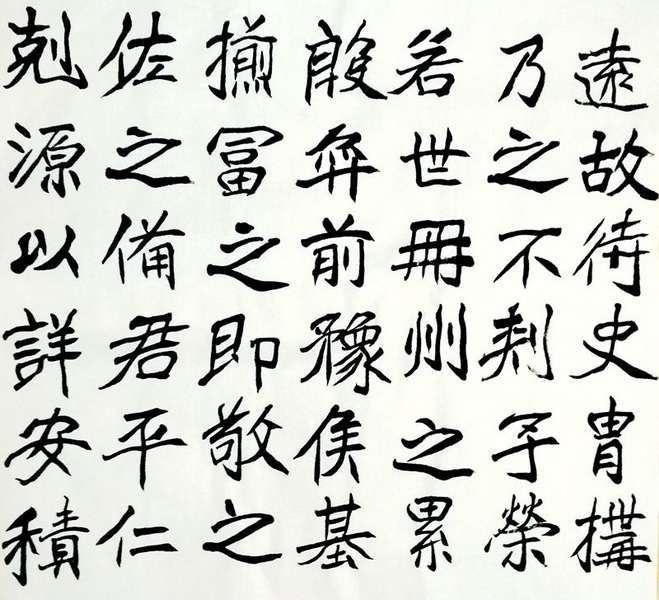 遠故待史胄搆
乃之不榮
若世冊州之累
殷弈前豫侯基
揃冨之即敬之
佐之備君平仁
剋源以詳安積